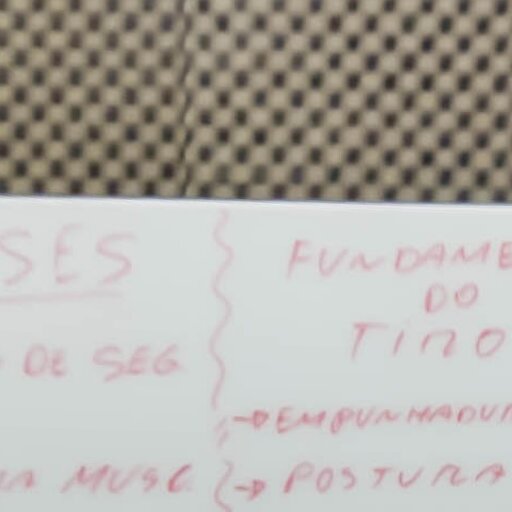 SES
DE SEG
MUSC
FUNDAME
DO
TIRO
→ EMPUNHADUR
→ POSTURA